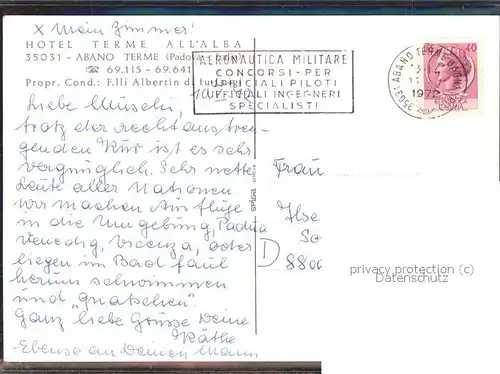 x Mein Zimmer!
HOTEL TERME ALL'ALBA
35031 - ABANO TERME (Padova - Italy)
☎ 69.115 - 69.641
Propr. Cond.: F.lli Albertin di
AERONAUTICA MILITARE
CONCORSI - PER
UFFICIALI PILOTI
UFFICIALI INGEGNERI
SPECIALISTI
ABANO TERME
1972
40
Liebe Muschi,
trotz der recht anstren-
genden Kur ist es sehr
vergnüglich. Sehr nette
Leute aller Nationen
wir machen Ausflüge
in die Umgebung, Padua
Venedig, Vicenza, oder
liegen im Bad faul
herum schwimmen
und "quatschen".
Ganz liebe Grüsse Deine
Käthe
Ebenso an Deinen Mann
Frau
Ilse
D 8800
privacy protection (c)
Datenschutz